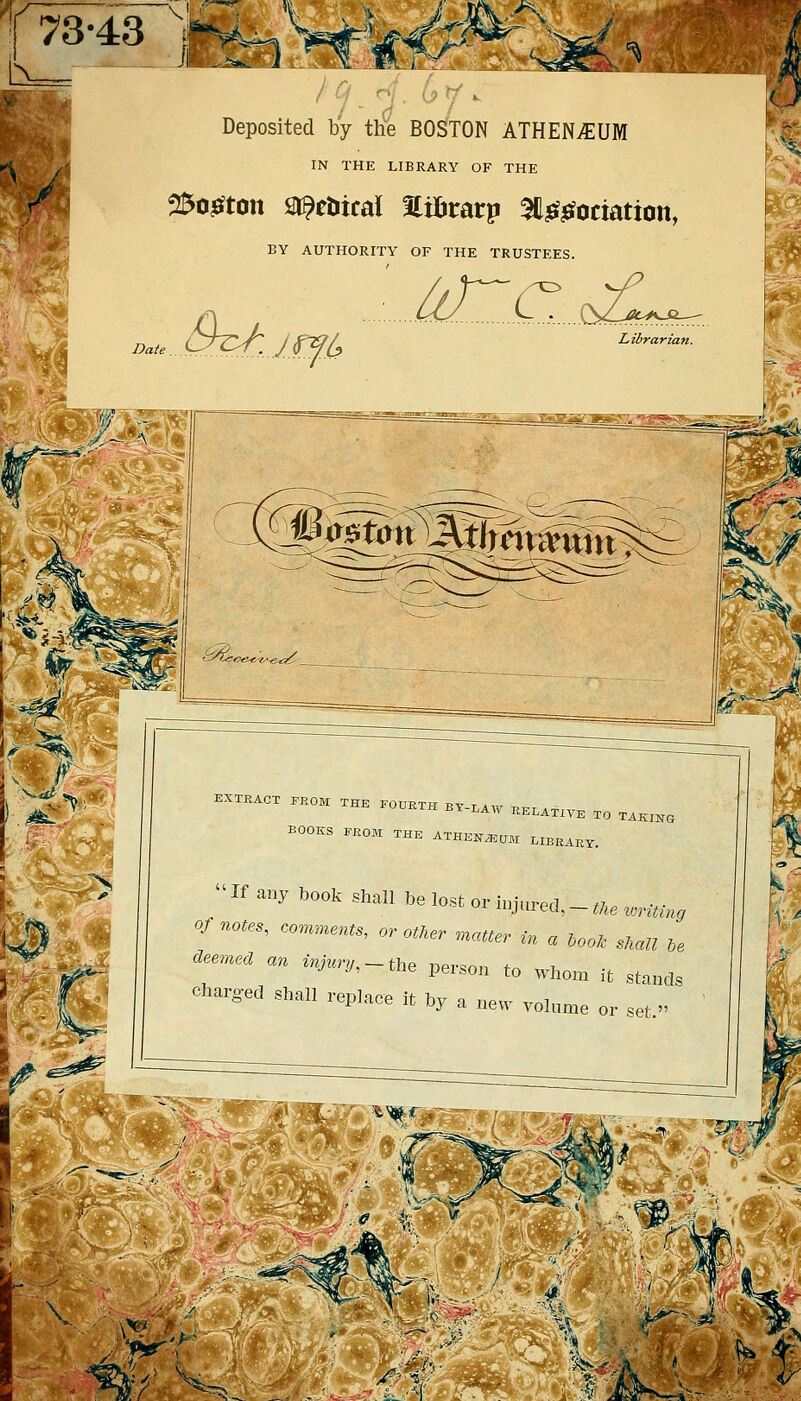 73·43
19.J.67.
Deposited by the BOSTON ATHENÆUM
IN THE LIBRARY OF THE
Boston Medical Library Association,
BY AUTHORITY OF THE TRUSTEES.
Wm C. Lane
Librarian.
Date Oct. 1896
Boston Athenæum,
Received
EXTRACT FROM THE FOURTH BY-LAW RELATIVE TO TAKING
BOOKS FROM THE ATHENÆUM LIBRARY.
"If any book shall be lost or injured, – the writing
of notes, comments, or other matter in a book shall be
deemed an injury, – the person to whom it stands
charged shall replace it by a new volume or set."